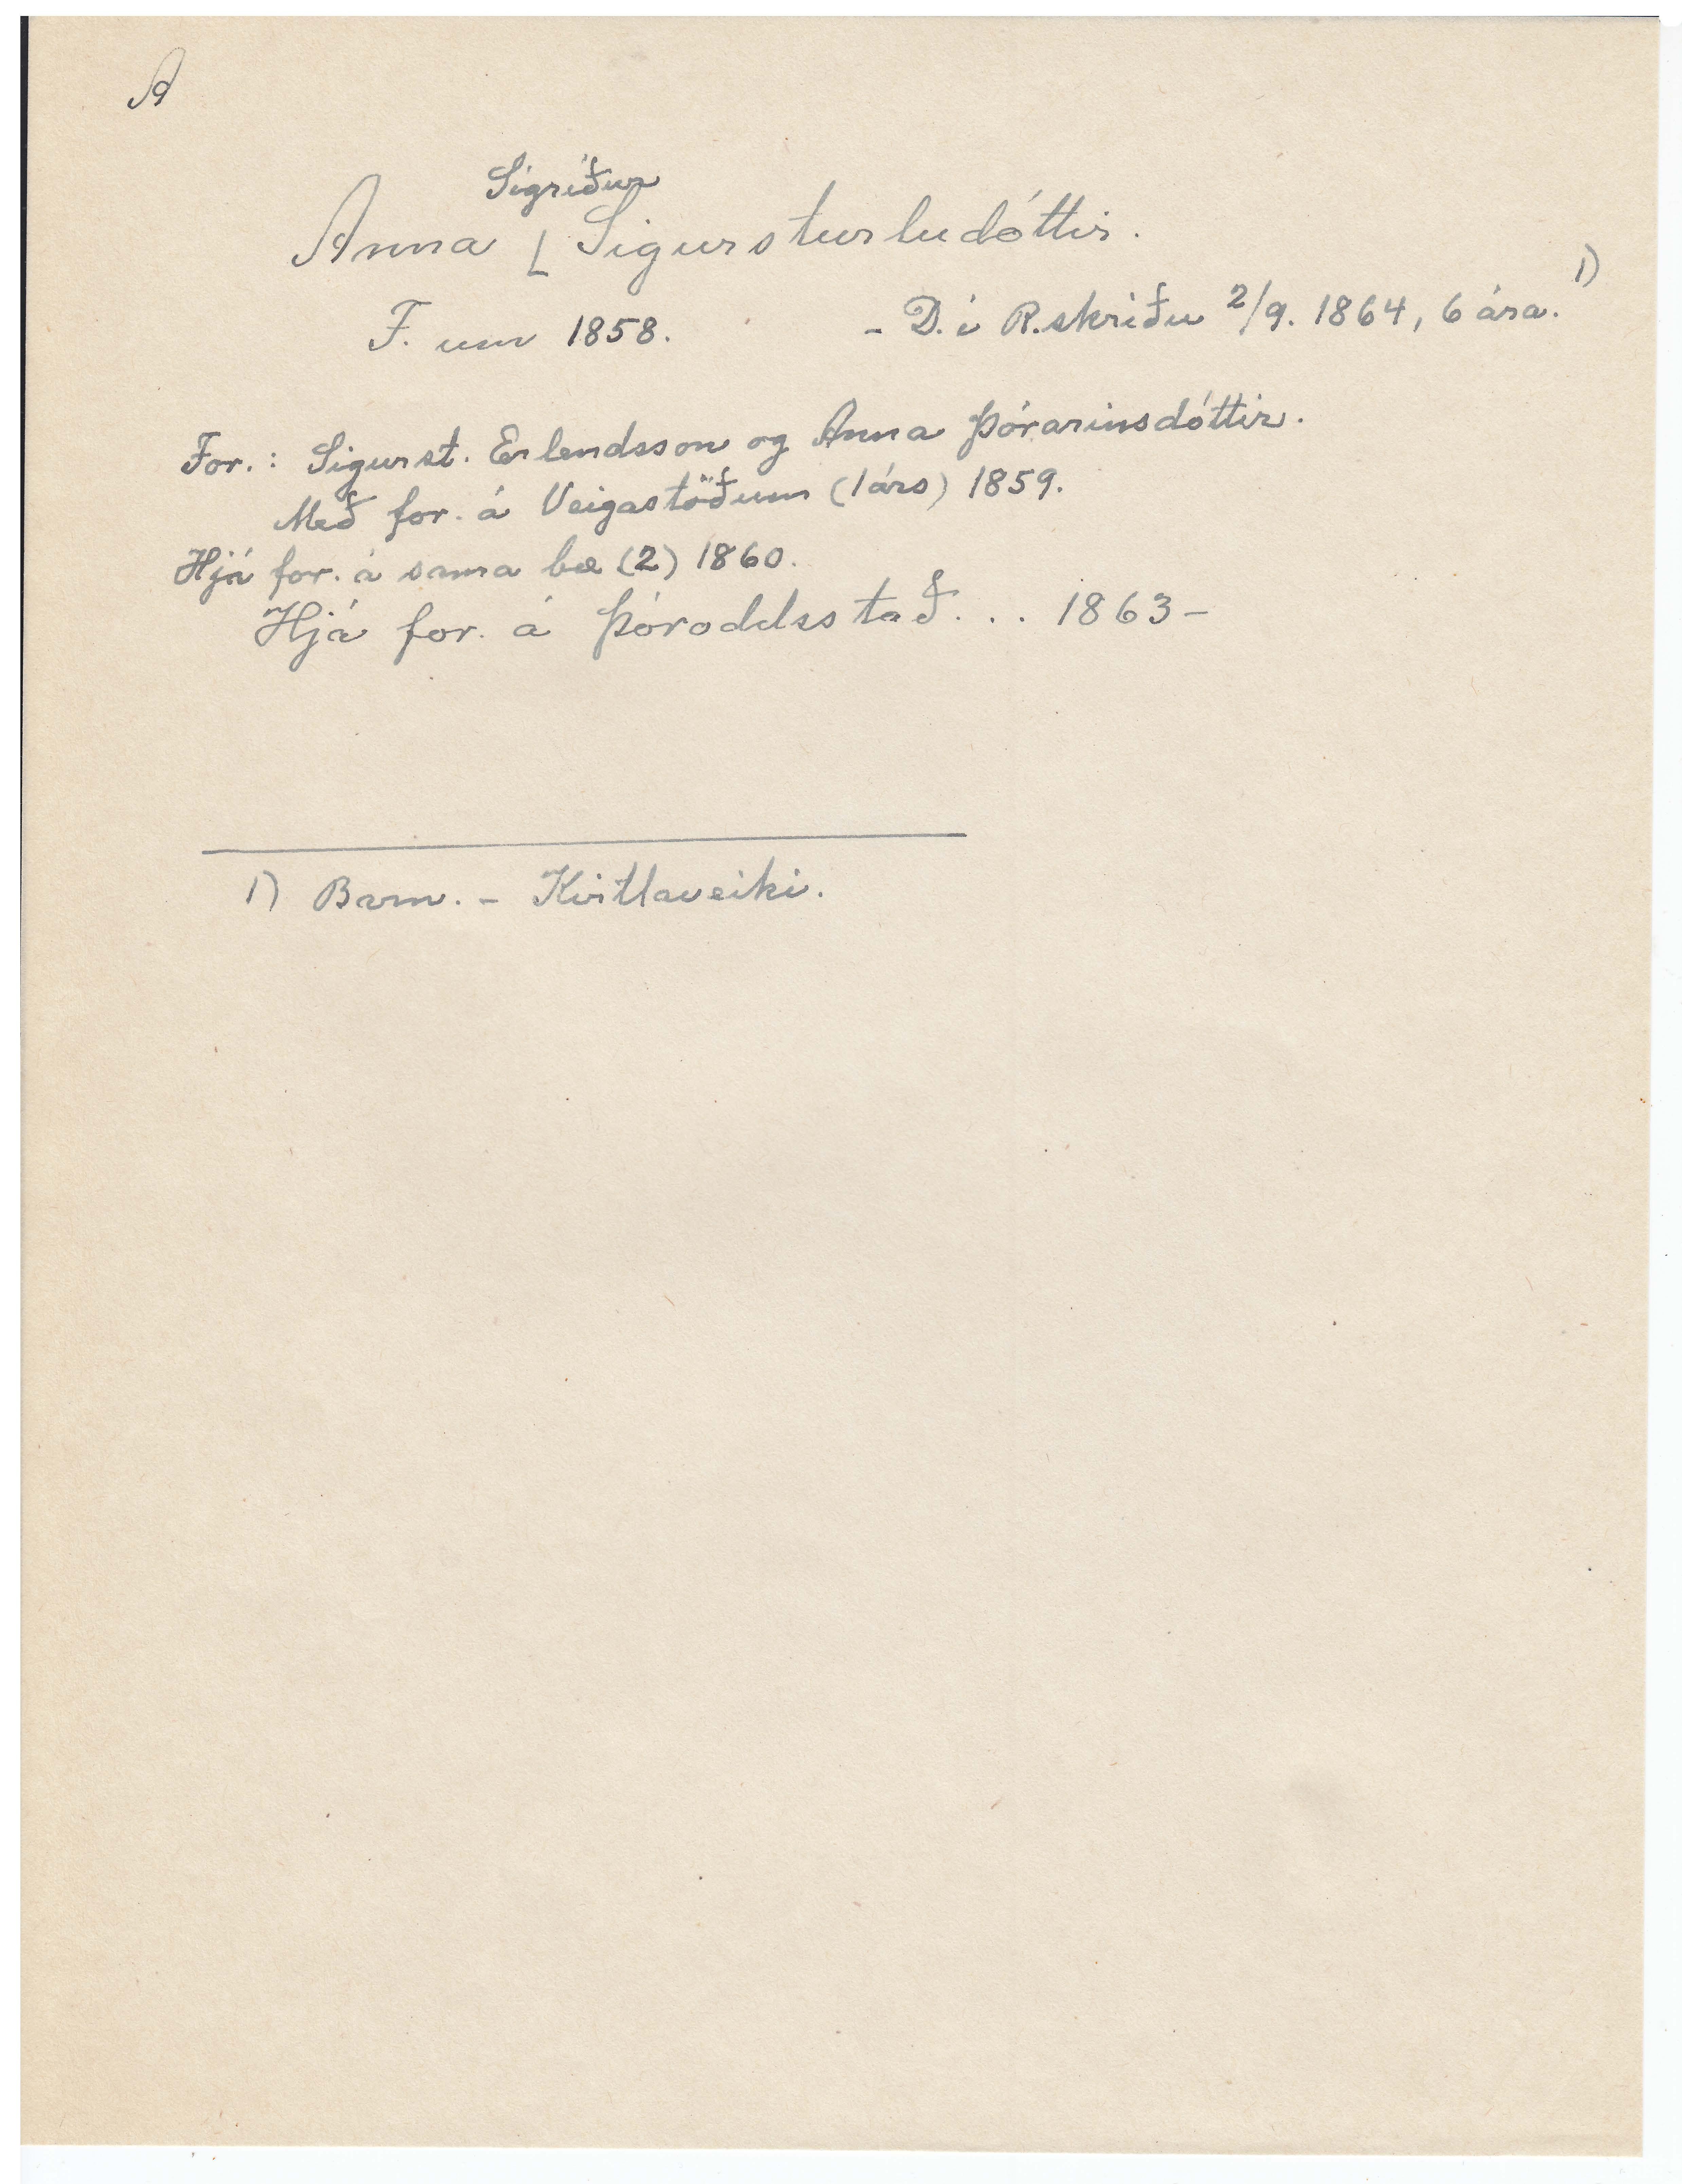 A
Sigríður
Anna ⌊ Sigursturludóttir.
F. um 1858. - D. í R.skriðu 2/9. 1864, 6 ára. 1)
For.: Sigurst. Erlendsson og Anna Þórarinsdóttir.
Með for. á Veigastöðum (1 árs) 1859.
Hjá for. á sama bæ (2) 1860.
Hjá for. á Þóroddsstað... 1863-
1) Barn. - Kvillaveiki.